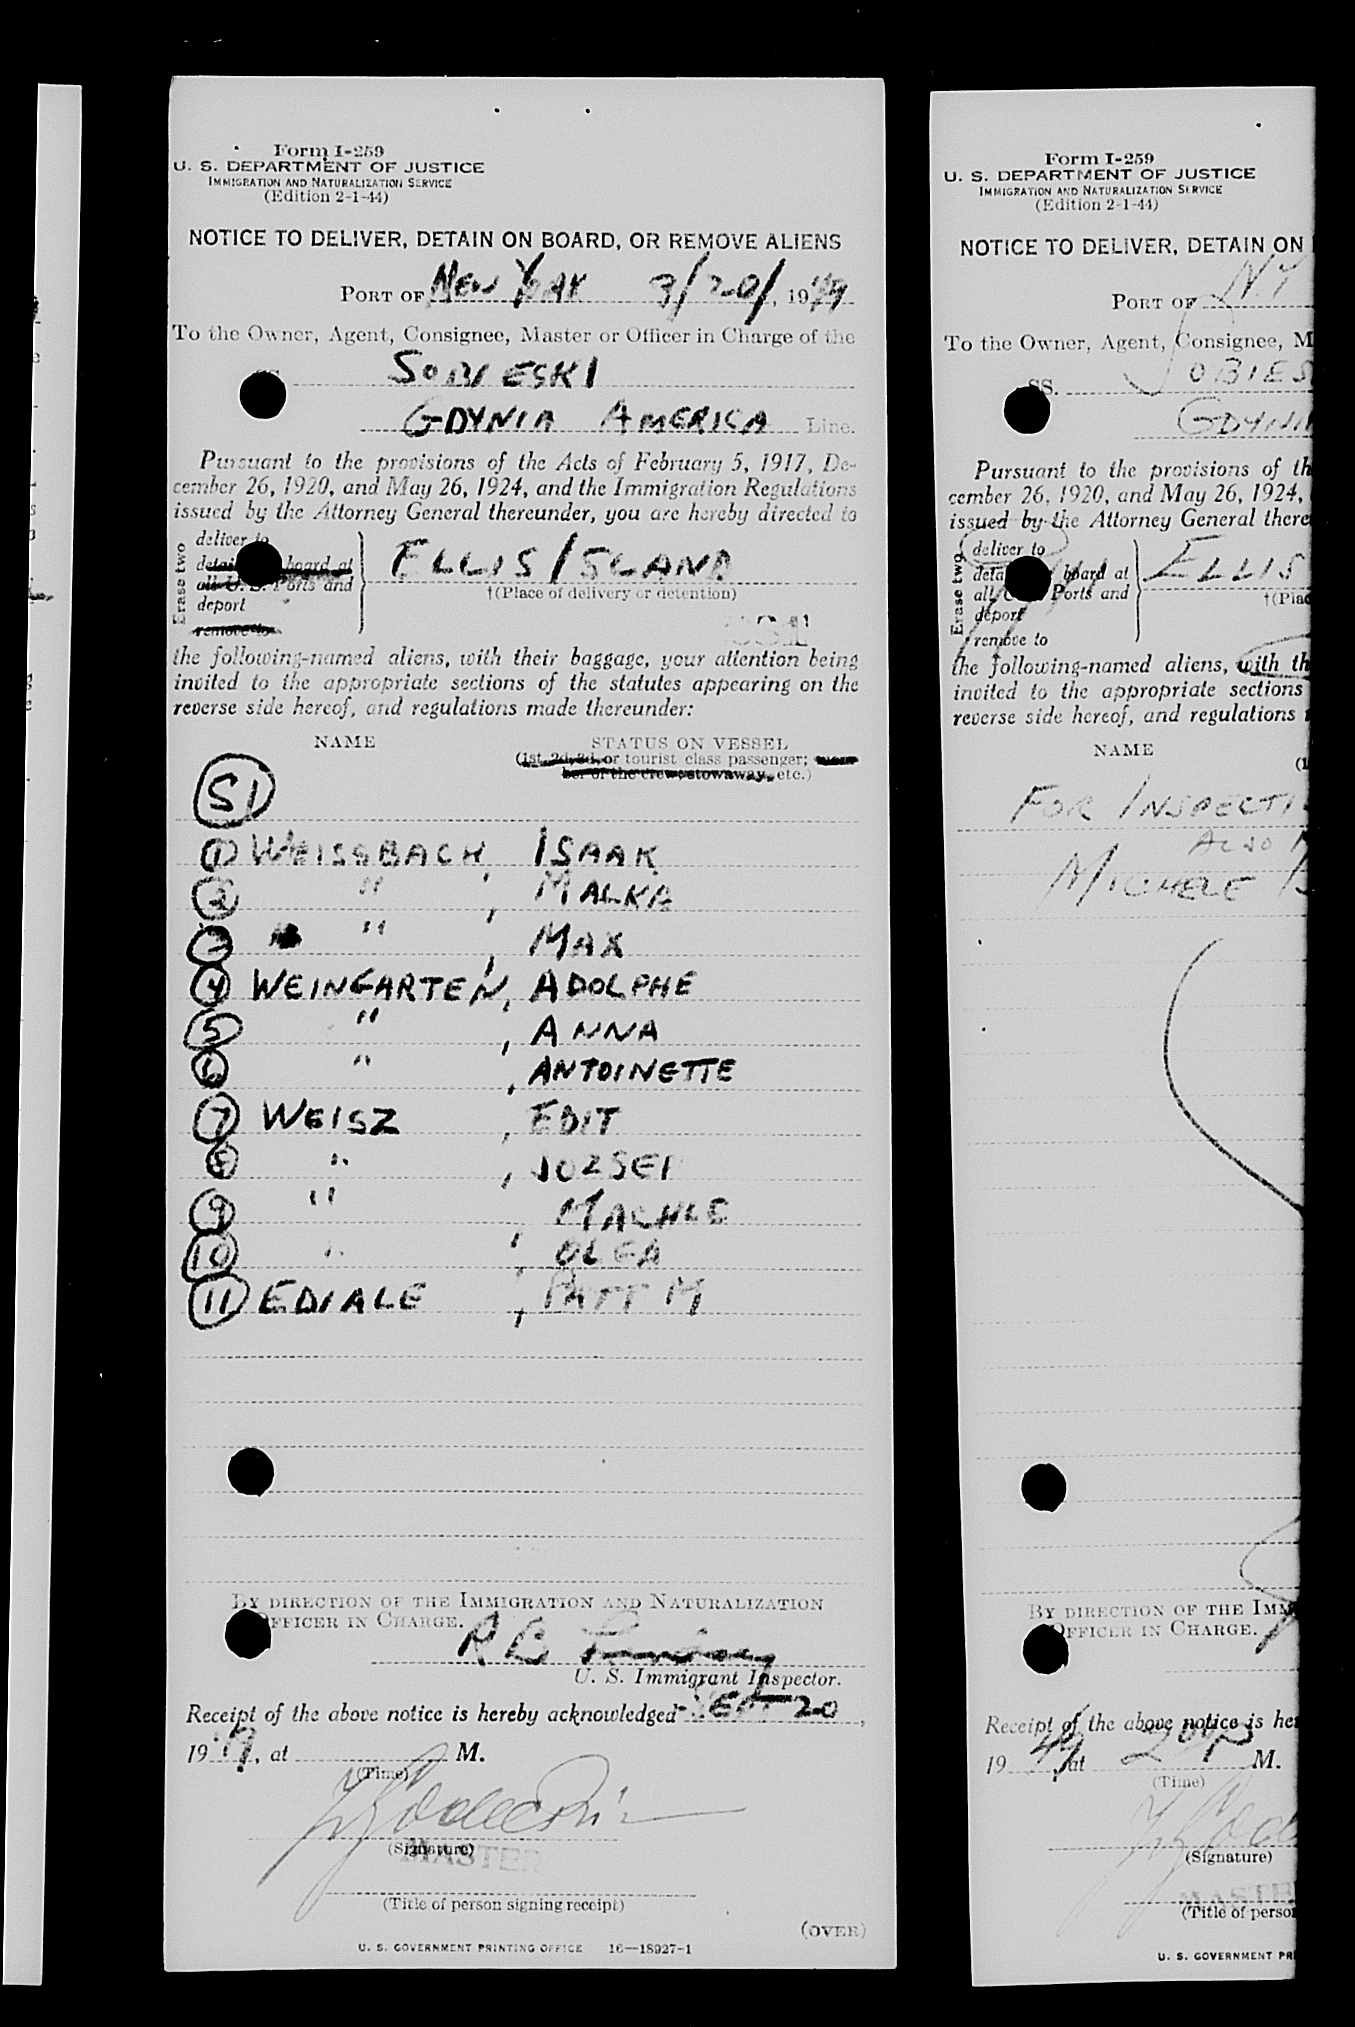 Form I-259
U. S. DEPARTMENT OF JUSTICE
IMMIGRATION AND NATURALIZATION SERVICE
(Edition 2-1-44)
NOTICE TO DELIVER, DETAIN ON BOARD, OR REMOVE ALIENS
PORT OF NEW YORK 9/20/, 1949
To the Owner, Agent, Consignee, Master or Officer in Charge of the
SOBIESKI
GDYNIA AMERICA Line.
Pursuant to the provisions of the Acts of February 5, 1917, De-
cember 26, 1920, and May 26, 1924, and the Immigration Regulations
issued by the Attorney General thereunder, you are hereby directed to
Erase two
deliver to
detain board at
all U. S. Ports and
deport
remove to
ELLIS ISLAND
†(Place of delivery or detention)
the following-named aliens, with their baggage, your attention being
invited to the appropriate sections of the statutes appearing on the
reverse side hereof, and regulations made thereunder:
NAME
STATUS ON VESSEL
(1st, 2d, 3d, or tourist class passenger; mem-
ber of the crew, stowaway, etc.)
S1
1 WEISSBACH, ISAAK
2 " , MALKA
3 " , MAX
4 WEINGARTEN, ADOLPHE
5 " , ANNA
6 " , ANTOINETTE
7 WEISZ , EDIT
8 " , JOZSEF
9 " , MACHLE
10 " , OLGA
11 EDIALE , PATT M
BY DIRECTION OF THE IMMIGRATION AND NATURALIZATION
OFFICER IN CHARGE.
U. S. Immigrant Inspector.
Receipt of the above notice is hereby acknowledged SEPT 20,
19 , at M.
(Time)
(Signature)
MASTER
(Title of person signing receipt)
(OVER)
U. S. GOVERNMENT PRINTING OFFICE 16—18927-1
Form I-259
U. S. DEPARTMENT OF JUSTICE
IMMIGRATION AND NATURALIZATION SERVICE
(Edition 2-1-44)
NOTICE TO DELIVER, DETAIN ON
PORT OF N.Y
To the Owner, Agent, Consignee, M
SS. SOBIES
GDYNI
Pursuant to the provisions of th
cember 26, 1920, and May 26, 1924,
issued by the Attorney General there
Erase two
deliver to
deta board at
all Ports and
deport
remove to
ELLIS
†(Plac
the following-named aliens, with th
invited to the appropriate sections
reverse side hereof, and regulations
NAME
FOR INSPECTI
ALSO
MICHELE
BY DIRECTION OF THE IMM
OFFICER IN CHARGE.
Receipt of the above notice is her
19 49, at M.
(Time)
(Signature)
MASTE
(Title of person
U. S. GOVERNMENT PR